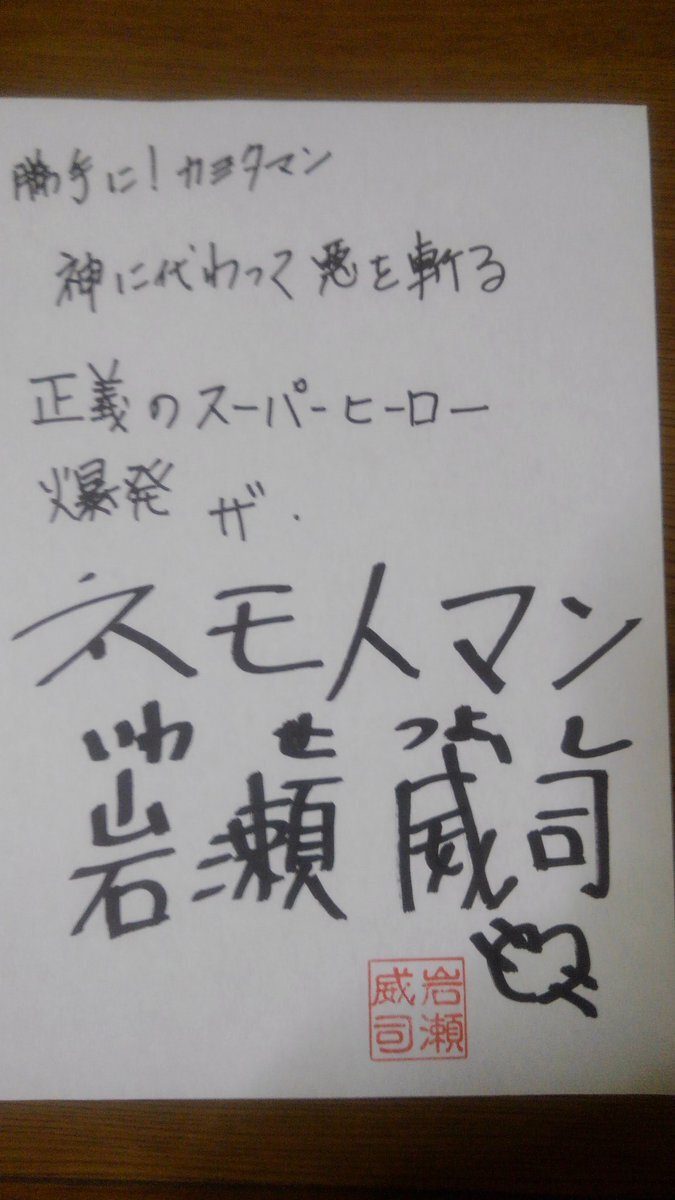 勝手に!カヨタマン
神に代わって悪を斬る
正義のスーパーヒーロー
爆発 ザ.
ネモ人マン
いわ せ つよ し
岩瀬 威司
岩瀬
威司